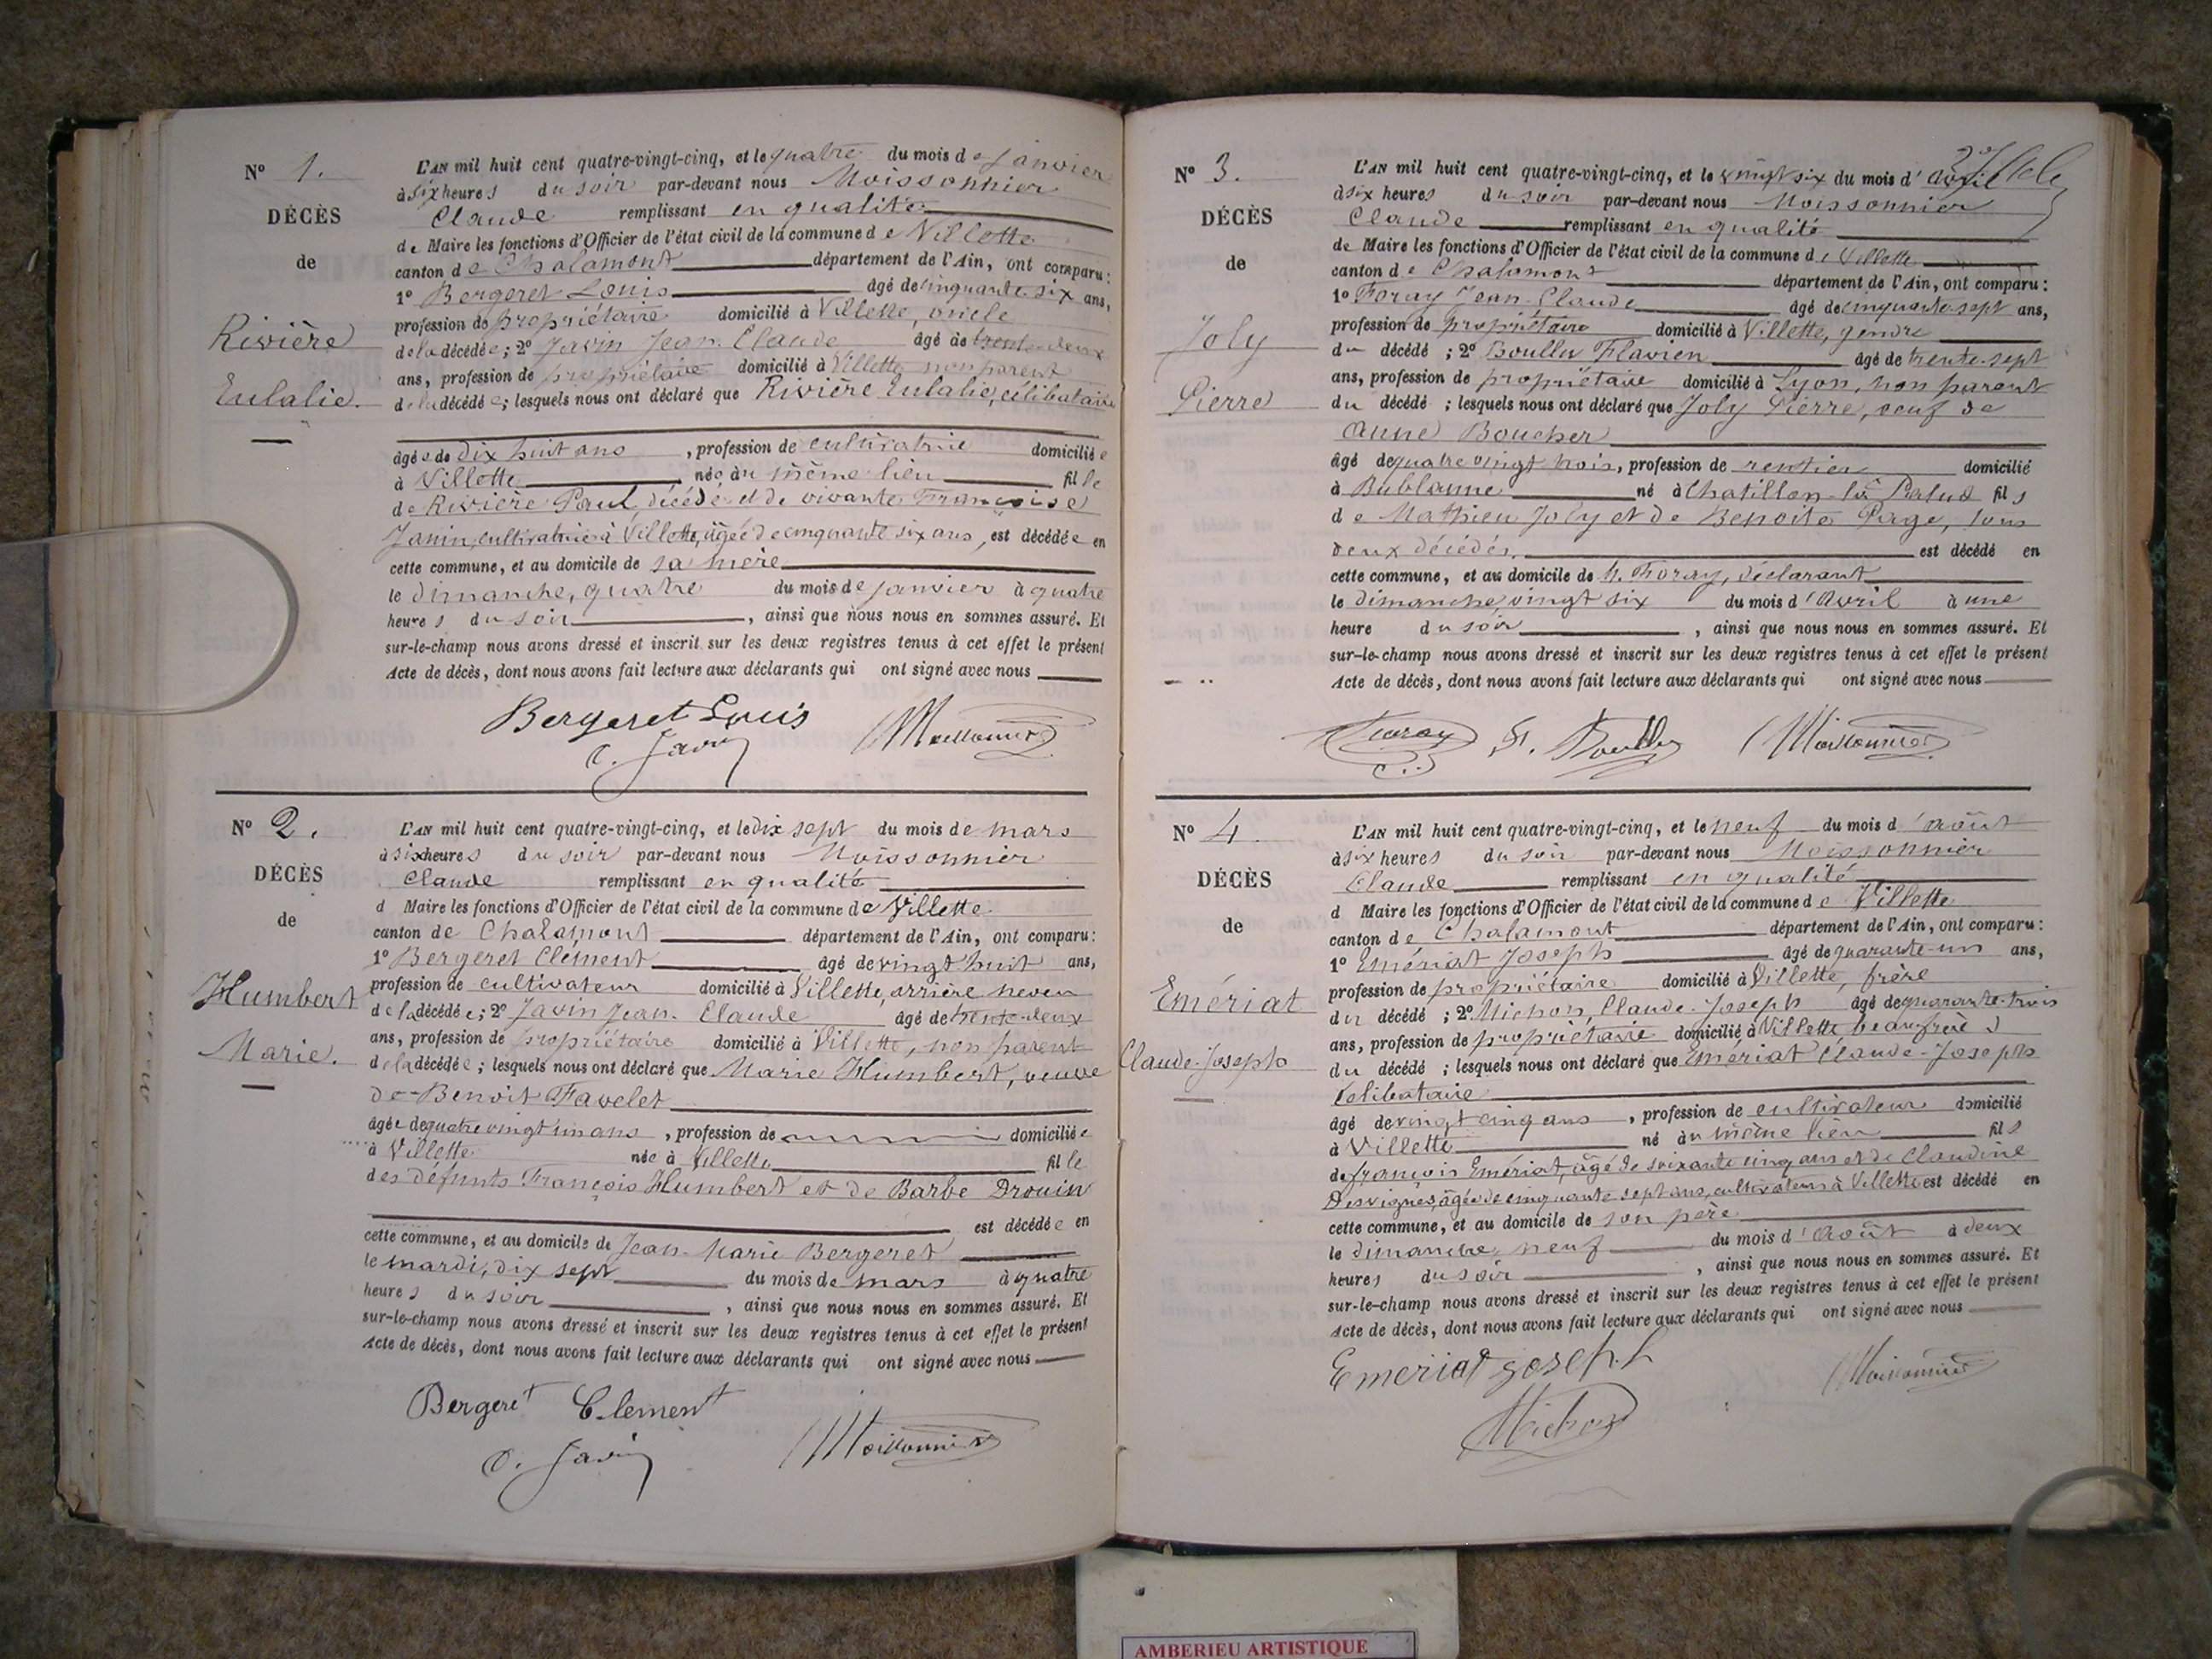 N° 1.
DÉCÈS
de
Rivière
Eulalie.
L'AN mil huit cent quatre-vingt-cinq, et le quatre du mois de janvier
à six heures du soir par-devant nous Moissonnier
Claude remplissant en qualité
de Maire les fonctions d'Officier de l'état civil de la commune de Villette
canton de Chalamont département de l'Ain, ont comparu:
1° Bergeret Louis âgé de cinquante-six ans,
profession de propriétaire domicilié à Villette, oncle
de la décédée; 2° Javin Jean-Claude âgé de trente-deux
ans, profession de propriétaire domicilié à Villette non parent
de la décédée; lesquels nous ont déclaré que Rivière Eulalie, célibataire
âgée de dix huit ans, profession de cultivatrice domiciliée
à Villette née au même lieu fille
de Rivière Paul, décédé et de vivante Françoise
Janin, cultivatrice à Villette, âgée de cinquante six ans, est décédée en
cette commune, et au domicile de sa mère
le dimanche, quatre du mois de janvier à quatre
heures du soir, ainsi que nous nous en sommes assuré. Et
sur-le-champ nous avons dressé et inscrit sur les deux registres tenus à cet effet le présent
Acte de décès, dont nous avons fait lecture aux déclarants qui ont signé avec nous
Bergeret Louis Moissonnier
C. Javin
N° 2.
DÉCÈS
de
Humbert
Marie.
L'AN mil huit cent quatre-vingt-cinq, et le dix sept du mois de mars
à six heures du soir par-devant nous Moissonnier
Claude remplissant en qualité
d Maire les fonctions d'Officier de l'état civil de la commune de Villette
canton de Chalamont département de l'Ain, ont comparu:
1° Bergeret Clément âgé de vingt huit ans,
profession de cultivateur domicilié à Villette, arrière neveu
de la décédée; 2° Javin Jean-Claude âgé de trente-deux
ans, profession de propriétaire domicilié à Villette, non parent
de la décédée; lesquels nous ont déclaré que Marie Humbert, veuve
de Benoit Favelet
âgée de quatre vingt un ans, profession de domiciliée
à Villette née à Villette fille
des défunts François Humbert et de Barbe Drouin
est décédée en
cette commune, et au domicile de Jean-Marie Bergeret
le mardi, dix sept du mois de mars à quatre
heures du soir, ainsi que nous nous en sommes assuré. Et
sur-le-champ nous avons dressé et inscrit sur les deux registres tenus à cet effet le présent
Acte de décès, dont nous avons fait lecture aux déclarants qui ont signé avec nous
Bergeret Clement
C. Javin Moissonnier
N° 3.
DÉCÈS
de
Joly
Pierre
L'AN mil huit cent quatre-vingt-cinq, et le vingt six du mois d'avril
à six heures du soir par-devant nous Moissonnier
Claude remplissant en qualité
de Maire les fonctions d'Officier de l'état civil de la commune de Villette
canton de Chalamont département de l'Ain, ont comparu:
1° Foray Jean-Claude âgé de cinquante-sept ans,
profession de propriétaire domicilié à Villette, gendre
du décédé; 2° Boullu Flavien âgé de trente-sept
ans, profession de propriétaire domicilié à Lyon, non parent
du décédé; lesquels nous ont déclaré que Joly Pierre, veuf de
Anne Boucher
âgé de quatre vingt trois, profession de rentier domicilié
à Bublanne né à Chatillon-la-Palud fils
de Mathieu Joly et de Benoite Page, tous
deux décédés est décédé en
cette commune, et au domicile de M. Foray, déclarant
le dimanche, vingt six du mois d'Avril à une
heure du soir, ainsi que nous nous en sommes assuré. Et
sur-le-champ nous avons dressé et inscrit sur les deux registres tenus à cet effet le présent
Acte de décès, dont nous avons fait lecture aux déclarants qui ont signé avec nous
Foray F. Boullu Moissonnier
N° 4.
DÉCÈS
de
Emériat
Claude-Joseph
L'AN mil huit cent quatre-vingt-cinq, et le neuf du mois d'août
à six heures du soir par-devant nous Moissonnier
Claude remplissant en qualité
d Maire les fonctions d'Officier de l'état civil de la commune de Villette
canton de Chalamont département de l'Ain, ont comparu:
1° Emériat Joseph âgé de quarante-un ans,
profession de propriétaire domicilié à Villette, frère
du décédé; 2° Michon, Claude-Joseph âgé de quarante-trois
ans, profession de propriétaire domicilié à Villette beau frère
du décédé; lesquels nous ont déclaré que Emériat Claude-Joseph
célibataire
âgé de vingt cinq ans, profession de cultivateur domicilié
à Villette né au même lieu fils
de François Emériat, âgé de soixante cinq ans et de Claudine
Desvignes, âgée de cinquante sept ans, cultivateurs à Villette est décédé en
cette commune, et au domicile de son père
le dimanche, neuf du mois d'Août à deux
heures du soir, ainsi que nous nous en sommes assuré. Et
sur-le-champ nous avons dressé et inscrit sur les deux registres tenus à cet effet le présent
Acte de décès, dont nous avons fait lecture aux déclarants qui ont signé avec nous
Emeriat Joseph Moissonnier
Michon
AMBERIEU ARTISTIQUE